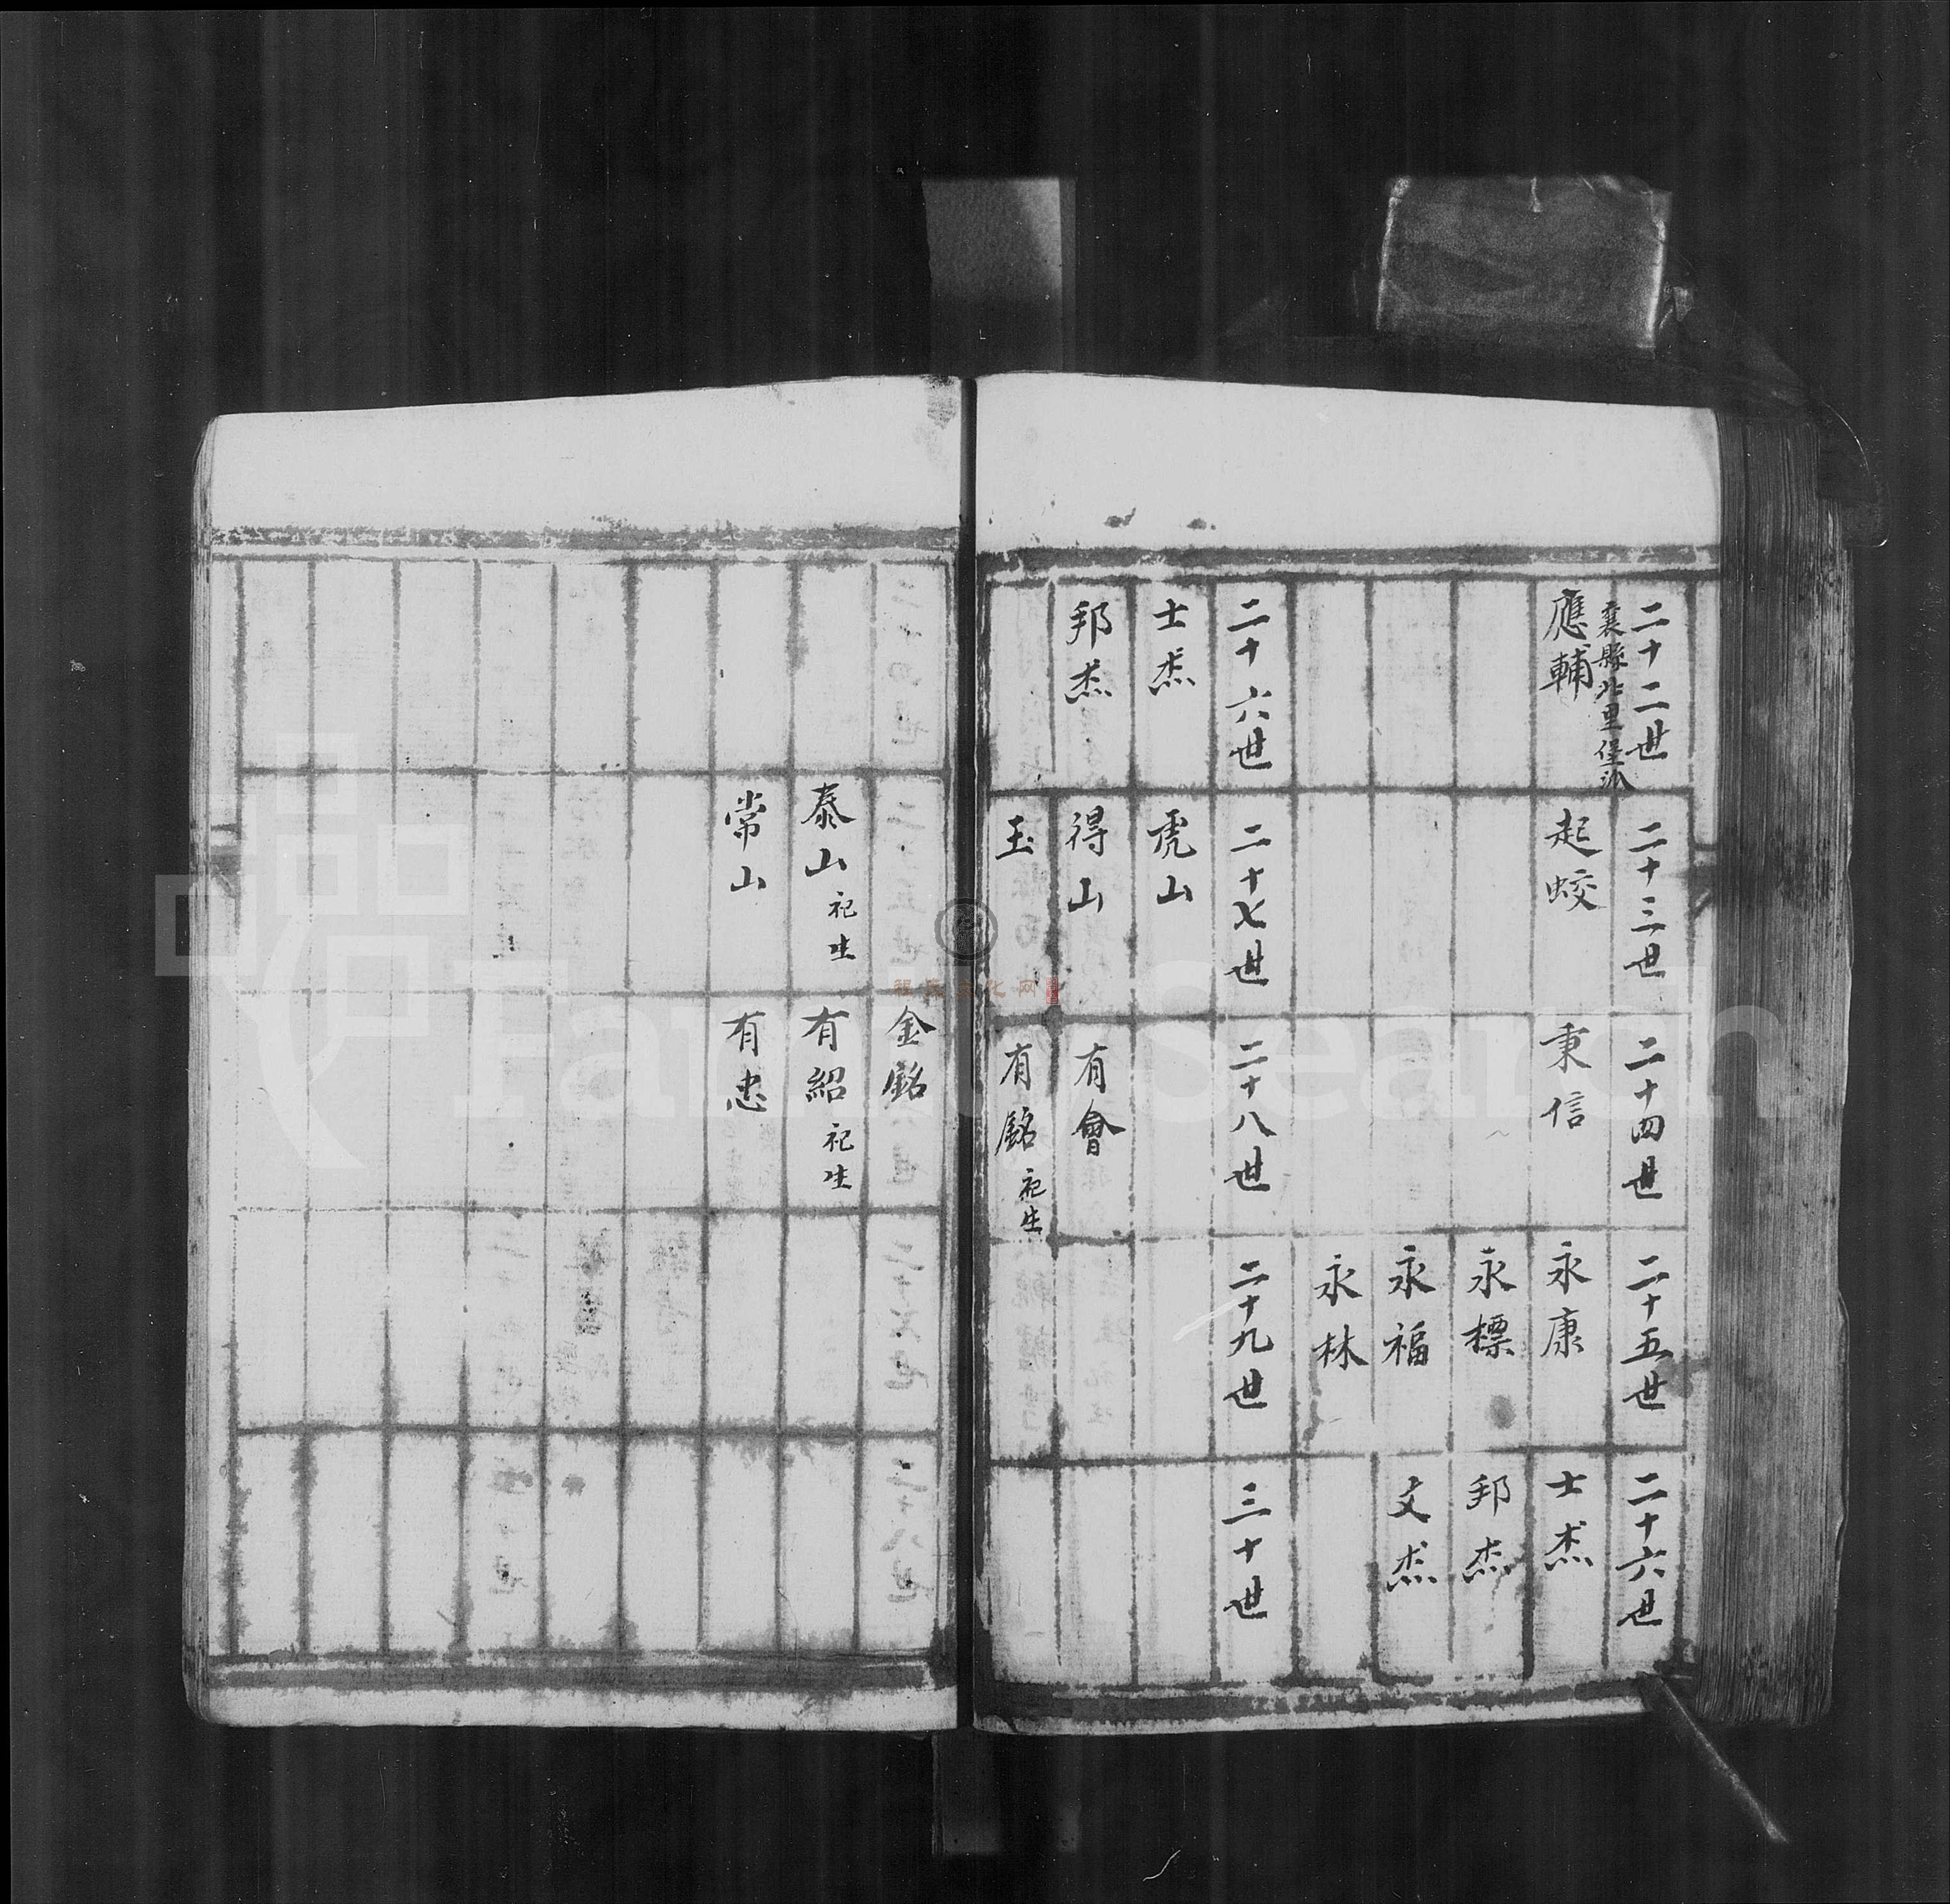 二十二世
襄縣北里堡派
應輔
二十三世
起蛟
二十四世
秉信
二十五世
永康
永標
永福
永林
二十六世
士杰
邦杰
文杰
二十六世
士杰
邦杰
二十七世
虎山
得山
玉
二十八世
有會
有銘 祀生
二十九世
三十世
泰山 祀生
常山
金銘
有紹 祀生
有忠
FamilySearch